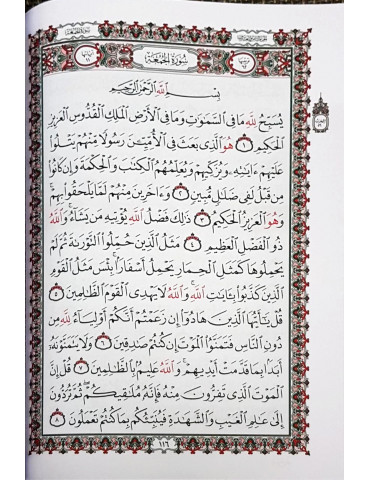 سُورَةُ الْجُمُعَةِ
بِسْمِ اللَّهِ الرَّحْمَٰنِ الرَّحِيمِ
يُسَبِّحُ لِلَّهِ مَا فِي السَّمَاوَاتِ وَمَا فِي الْأَرْضِ الْمَلِكِ الْقُدُّوسِ الْعَزِيزِ
الْحَكِيمِ ١ هُوَ الَّذِي بَعَثَ فِي الْأُمِّيِّينَ رَسُولًا مِنْهُمْ يَتْلُوا
عَلَيْهِمْ آيَاتِهِ وَيُزَكِّيهِمْ وَيُعَلِّمُهُمُ الْكِتَابَ وَالْحِكْمَةَ وَإِنْ كَانُوا
مِنْ قَبْلُ لَفِي ضَلَالٍ مُبِينٍ ٢ وَآخَرِينَ مِنْهُمْ لَمَّا يَلْحَقُوا بِهِمْ
وَهُوَ الْعَزِيزُ الْحَكِيمُ ٣ ذَٰلِكَ فَضْلُ اللَّهِ يُؤْتِيهِ مَنْ يَشَاءُ وَاللَّهُ
ذُو الْفَضْلِ الْعَظِيمِ ٤ مَثَلُ الَّذِينَ حُمِّلُوا التَّوْرَاةَ ثُمَّ لَمْ
يَحْمِلُوهَا كَمَثَلِ الْحِمَارِ يَحْمِلُ أَسْفَارًا بِئْسَ مَثَلُ الْقَوْمِ
الَّذِينَ كَذَّبُوا بِآيَاتِ اللَّهِ وَاللَّهُ لَا يَهْدِي الْقَوْمَ الظَّالِمِينَ ٥
قُلْ يَا أَيُّهَا الَّذِينَ هَادُوا إِنْ زَعَمْتُمْ أَنَّكُمْ أَوْلِيَاءُ لِلَّهِ مِنْ
دُونِ النَّاسِ فَتَمَنَّوُا الْمَوْتَ إِنْ كُنْتُمْ صَادِقِينَ ٦ وَلَا يَتَمَنَّوْنَهُ
أَبَدًا بِمَا قَدَّمَتْ أَيْدِيهِمْ وَاللَّهُ عَلِيمٌ بِالظَّالِمِينَ ٧ قُلْ إِنَّ
الْمَوْتَ الَّذِي تَفِرُّونَ مِنْهُ فَإِنَّهُ مُلَاقِيكُمْ ثُمَّ تُرَدُّونَ
إِلَىٰ عَالِمِ الْغَيْبِ وَالشَّهَادَةِ فَيُنَبِّئُكُمْ بِمَا كُنْتُمْ تَعْمَلُونَ ٨
١١٦